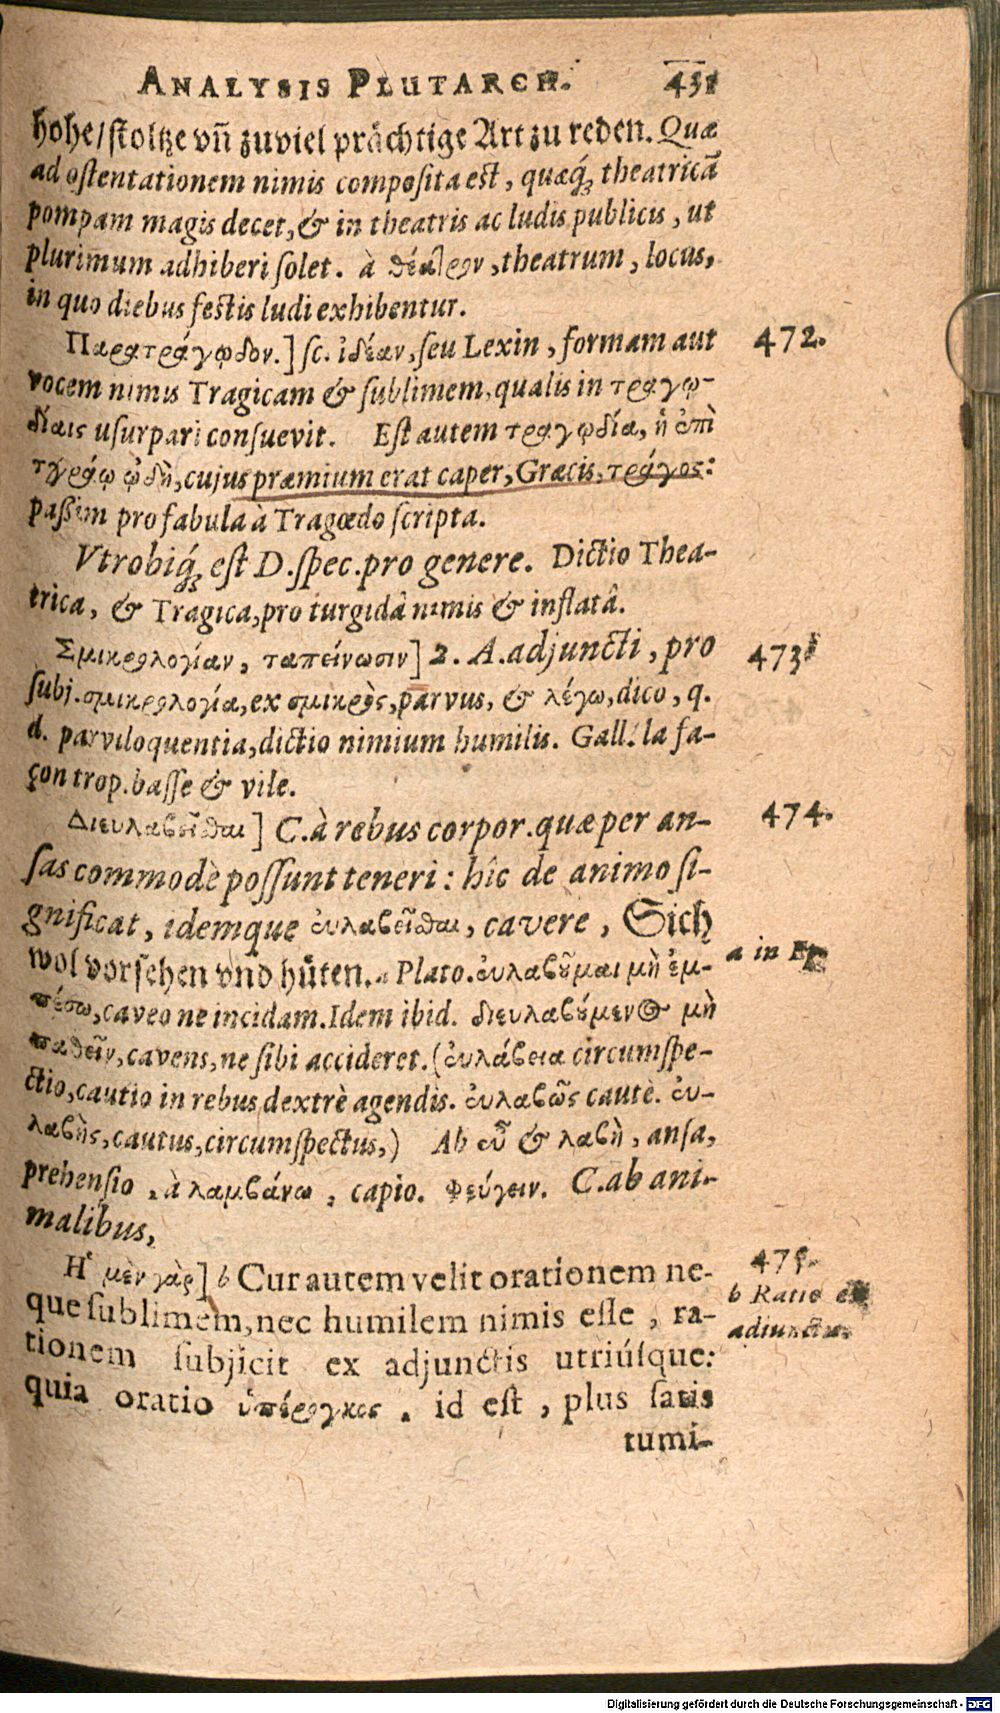 ANALYSIS PLUTARCH. 431
hohe/ stoltze vñ zuviel prächtige Art zu reden. Quæ
ad ostentationem nimis composita est, quæq́; theatricā
pompam magis decet, & in theatris ac ludis publicis, ut
plurimum adhiberi solet. à θέατρον, theatrum, locus,
in quo diebus festis ludi exhibentur.
Παρατράγῳδον.] sc. ἰδέαν, seu Lexin, formam aut 472.
vocem nimis Tragicam & sublimem, qualis in τραγῳ-
δίαις usurpari consuevit. Est autem τραγῳδία, ἡ ἐπὶ
τράγῳ ᾠδὴ, cujus præmium erat caper, Græcis, τράγος:
passim pro fabula à Tragœdo scripta.
Vtrobiq́; est D. spec. pro genere. Dictio Thea-
trica, & Tragica, pro turgidâ nimis & inflatâ.
Σμικρολογίαν, ταπείνωσιν] 2. A. adjuncti, pro 473
subj. σμικρολογία, ex σμικρὸς, parvus, & λέγω, dico, q.
d. parviloquentia, dictio nimium humilis. Gall. la fa-
çon trop. basse & vile.
Διευλαβεῖσθαι] C. à rebus corpor. quæ per an- 474.
sas commodè possunt teneri: hîc de animo si-
gnificat, idemque εὐλαβεῖσθαι, cavere, Sich
wol vorsehen vnd hüten. a Plato. εὐλαβοῦμαι μὴ ἐμ- a in
πέσω, caveo ne incidam. Idem ibid. διευλαβούμενος μὴ
παθεῖν, cavens, ne sibi accideret. (εὐλάβεια circumspe-
ctio, cautio in rebus dextrè agendis. εὐλαβῶς cautè. εὐ-
λαβὴς, cautus, circumspectus,) Ab εὖ & λαβὴ, ansa,
prehensio, à λαμβάνω, capio. Φεύγειν. C. ab ani-
malibus,
Ἡ μὲν γὰρ] b Cur autem velit orationem ne- 475.
que sublimem, nec humilem nimis esse, ra- b Ratio
tionem subjicit ex adjunctis utriúsque: adiunctis.
quia oratio ὑπέρογκος, id est, plus satis
tumi-
Digitalisierung gefördert durch die Deutsche Forschungsgemeinschaft - DFG